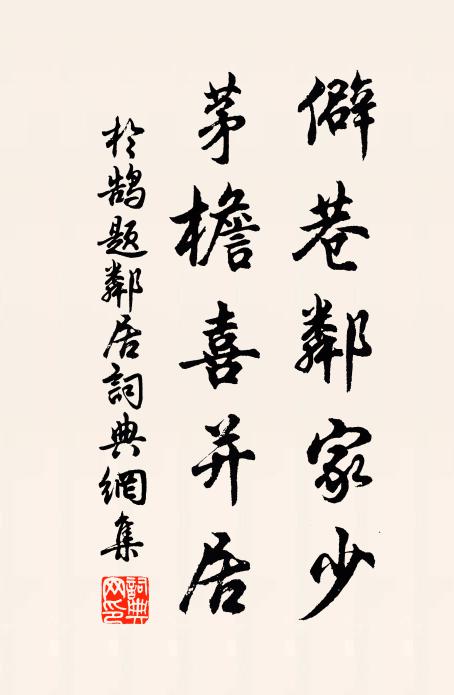 僻巷鄰家少
茅檐喜并居
於鵠題鄰居詞典網集
詞典
网印